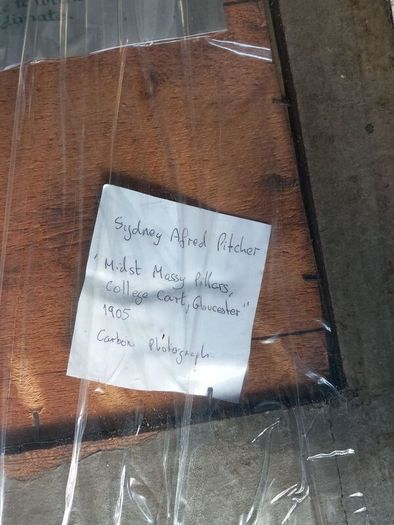 climate.
Sydney Afred Pitcher
"Midst Massy Pillars,
College Cart, Gloucester"
1905
Carbon photograph.